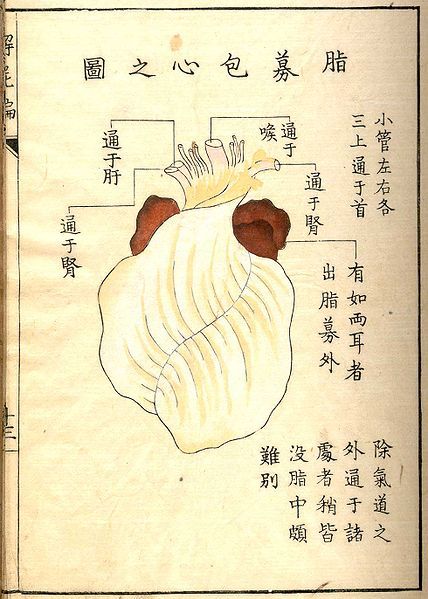 脂募包心之圖
小管左右各
三上通于首
通于喉
通于腎
通于肝
通于腎
有如両耳者
出脂募外
除氣道之
外通于諸
處者稍皆
没脂中頗
難別
解屍編
十三